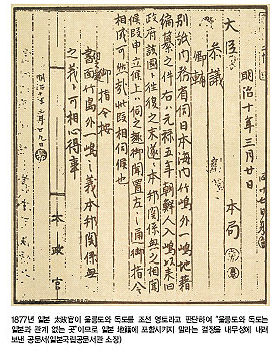 明治十年三月廿日
大臣
本局
参議
卿輔
別紙内務省伺日本海内竹嶋外一嶋地籍
編纂之件右ハ元禄五年朝鮮人入嶋以来旧
政府該国ト往復之末遂ニ本邦関係無之相聞
候段申立候上ハ伺之趣御聞置左之通御指令
相成可然哉此段相伺候也
御指令按
書面竹島外一嶋之義本邦関係無
之義ト可相心得事
明治十年三月廿九日
太政官
1877년 일본 太政官이 울릉도와 독도를 조선 영토라고 판단하여 "울릉도와 독도는
일본과 관계 없는 곳"이므로 일본 地籍에 포함시키지 말라는 결정을 내무성에 내려
보낸 공문서(일본국립공문서관 소장)